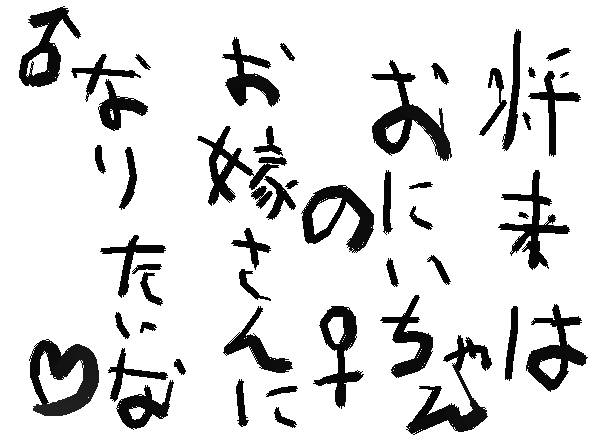 将来は
おにいちゃん
の♀
お嫁さんに
なりたいな♡
♂